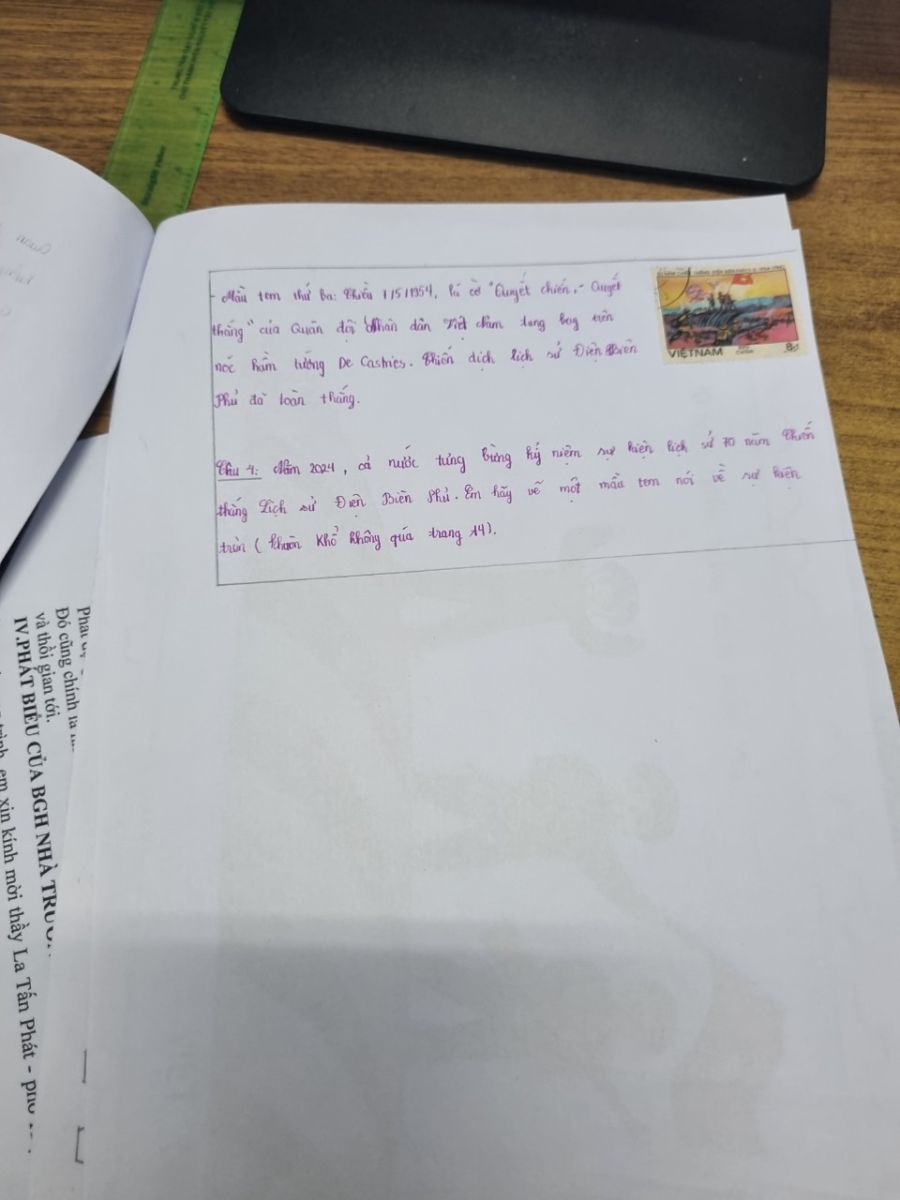 - Mẫu tem thứ ba: Chiều 7/5/1954, lá cờ "Quyết chiến - Quyết
thắng" của Quân đội Nhân dân Việt Nam tung bay trên
nóc hầm tướng De Castries. Chiến dịch lịch sử Điện Biên
Phủ đã toàn thắng.
VIỆTNAM
Câu 4: Năm 2024, cả nước tưng bừng kỷ niệm sự kiện lịch sử 70 năm Chiến
thắng Lịch sử Điện Biên Phủ. Em hãy vẽ một mẫu tem nói về sự kiện
trên (khuôn khổ không quá trang A4).
Đó cũng chính là
và thời gian tới.
IV.PHÁT BIỂU CỦA BGH NHÀ TRƯỜN
trình, em xin kính mời thầy La Tấn Phát - phó